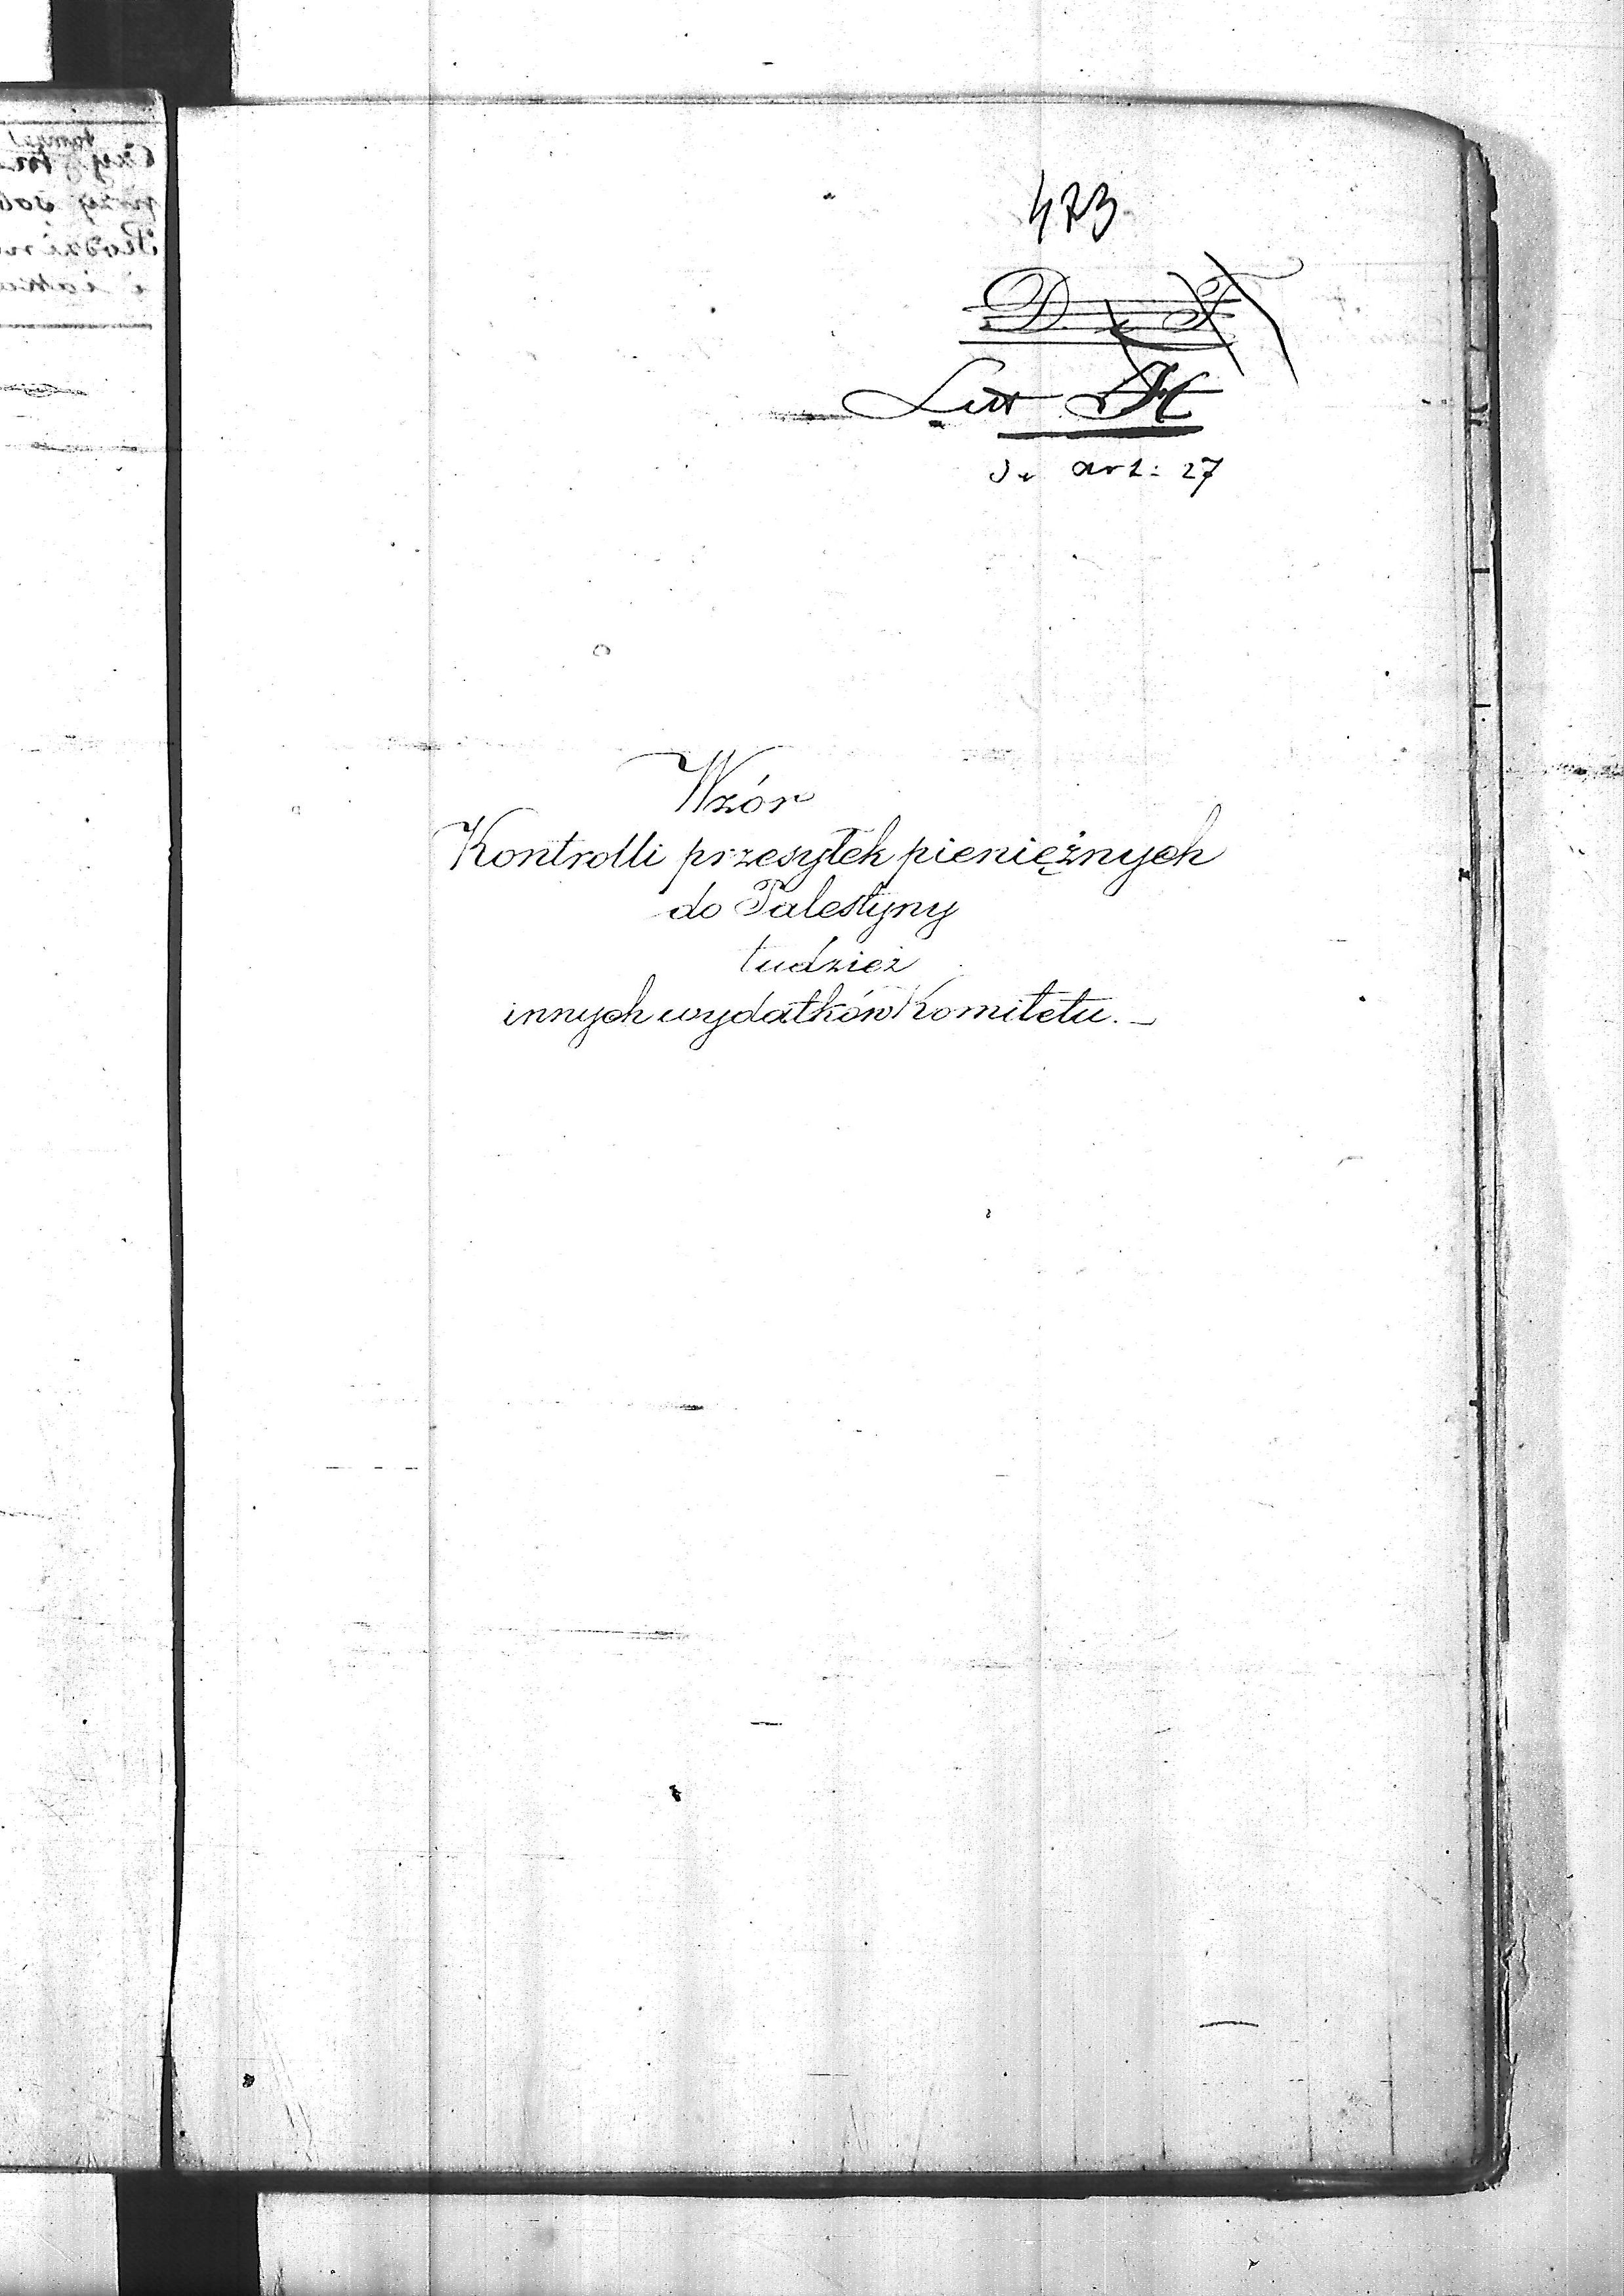 473
Litt H
art: 27
Wzór
Kontrolli przesyłek pieniężnych
do Palestyny
tudzież
innych wydatków Komitetu. –